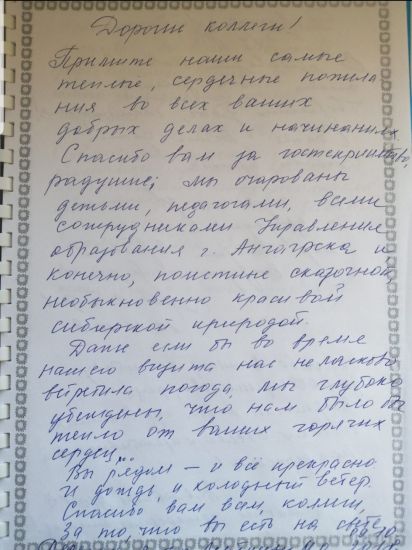 Дорогие коллеги!
Примите наши самые
теплые, сердечные пожела
ния во всех ваших
добрых делах и начинаниях.
Спасибо вам за гостеприимство,
радушие; мы очарованы
детьми, педагогами, всеми
сотрудниками Управления
образования г. Ангарска и
конечно, поистине сказочной,
необыкновенно красивой
сибирской природой.
Даже если бы во время
нашего визита нас неласково
встретила погода, мы глубоко
убеждены, что нам было бы
тепло от ваших горячих
сердец...
Вы рядом – и всё прекрасно
И дождь, и холодный ветер.
Спасибо вам всем, коллеги,
За то, что вы есть на свете